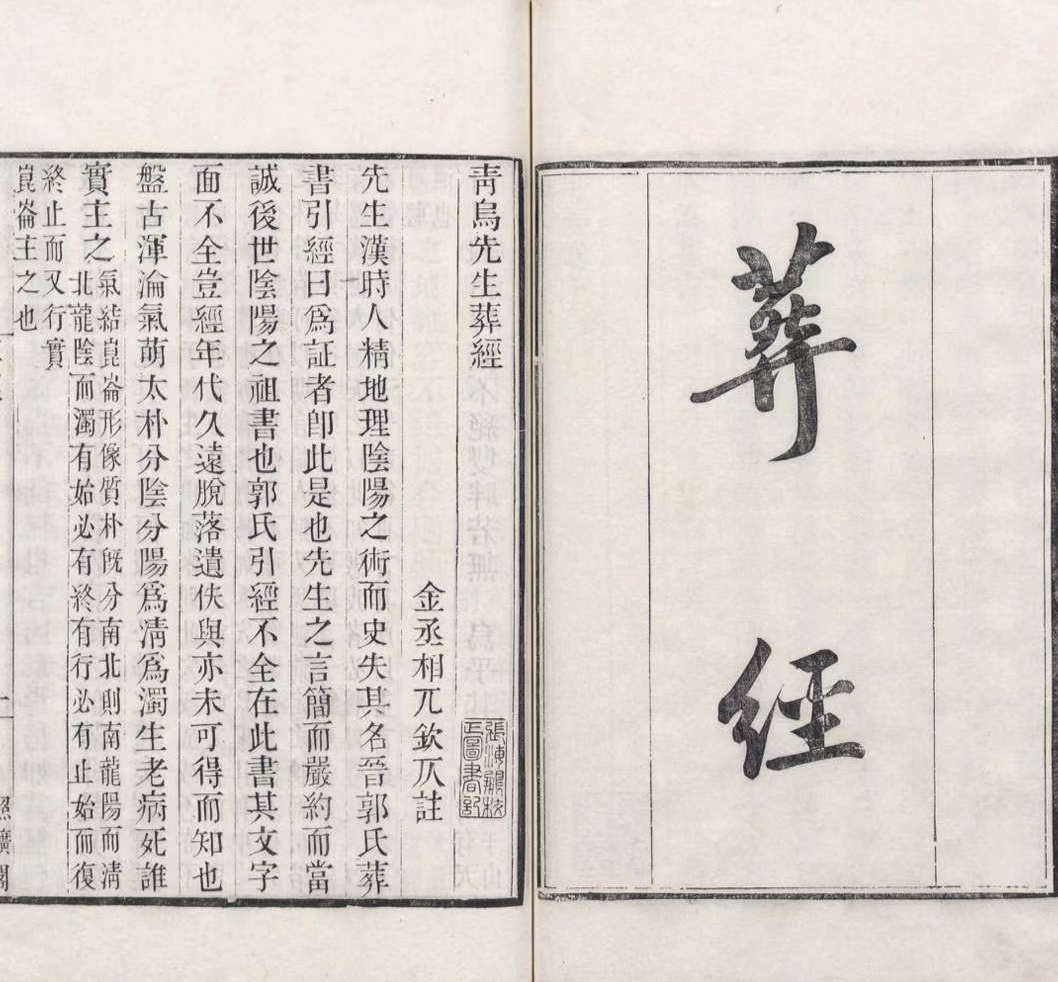 葬經
青烏先生葬經
金丞相兀欽仄註
張海鵬校
正圖書記
先生漢時人精地理陰陽之術而史失其名晉郭氏葬
書引經曰爲証者卽此是也先生之言簡而嚴約而當
誠後世陰陽之祖書也郭氏引經不全在此書其文字
面不全豈經年代久遠脫落遺佚與亦未可得而知也
盤古渾淪氣萌太朴分陰分陽爲淸爲濁生老病死誰
實主之
氣結崑崙形像質朴旣分南北則南龍陽而淸
北龍陰而濁有始必有終有行必有止始而復
終止而又行實
崑崙主之也
一
照曠閣